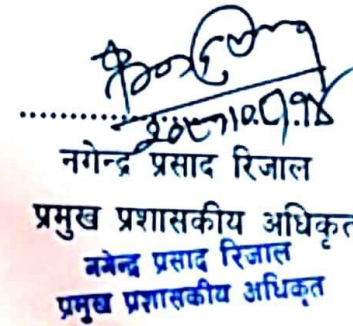 नगेन्द्र प्रसाद रिजाल
प्रमुख प्रशासकीय अधिकृत
नगेन्द्र प्रसाद रिजाल
प्रमुख प्रशासकीय अधिकृत